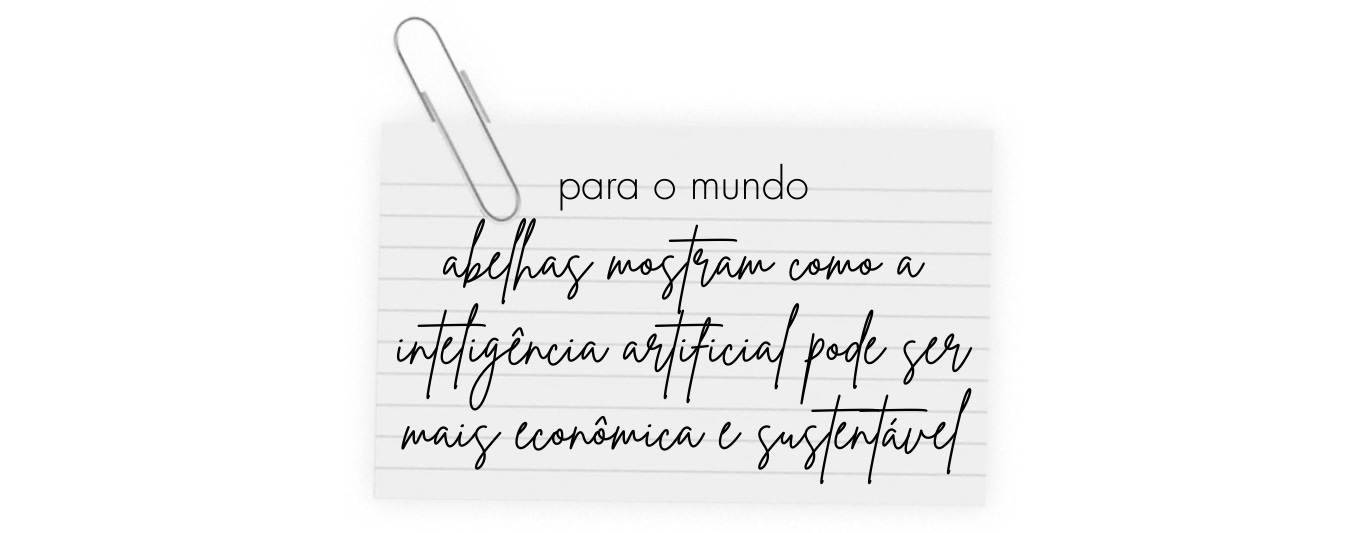 para o mundo
abelhas mostram como a
inteligência artificial pode ser
mais econômica e sustentável